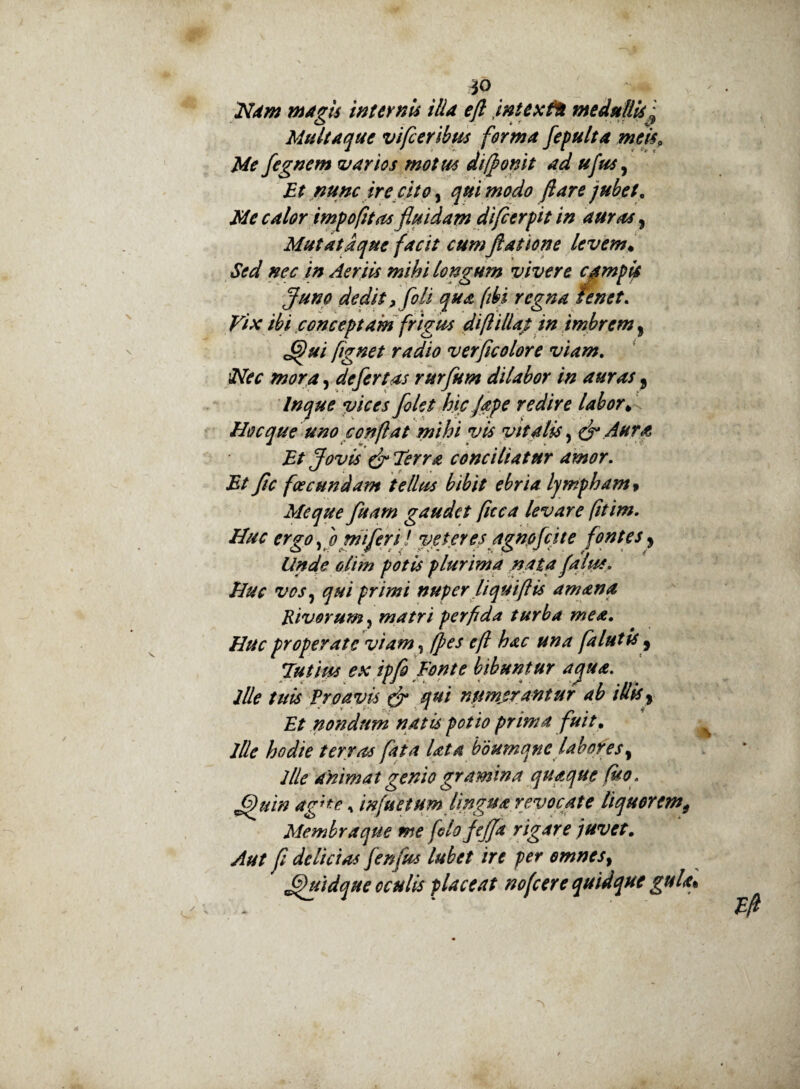 30
Nam magis internis illa eſt intexta medullis,
Multaque viſceribus forma ſepulta meis,
Me ſegnem varios motus diſponit ad uſus,
Et nunc ire cito, qui modo ſtare jubet.
Me calor impoſitas fluidam diſcerpit in auras,
Mutatáque facit cum ſtatione levem.
Sed nec in Aeriis mihi longum vivere campis
Juno dedit, ſoli quæ ſibi regna tenet.
Vix ibi conceptam frigus diſtillat in imbrem,
Qui ſignet radio verſicolore viam.
Nec mora, deſertas rurſum dilabor in auras,
Inque vices ſolet hic ſæpe redire labor.
Hocque uno conſtat mihi vis vitalis, & Auræ
Et Jovis & Terræ conciliatur amor.
Et ſic fœcundam tellus bibit ebria lympham,
Meque ſuam gaudet ſicca levare ſitim.
Huc ergo, o miſeri! veteres agnoſcite fontes,
Unde olim potis plurima nata ſalus.
Huc vos, qui primi nuper liquiſtis amæna
Rivorum, matri perfida turba meæ.
Huc properate viam, ſpes eſt hæc una ſalutis,
Tutius ex ipſo Fonte bibuntur aquæ.
Ille tuis Proavis & qui numerantur ab illis,
Et nondum natis potio prima fuit.
Ille hodie terras ſata læta boumque labores,
Ille animat genio gramina quæque ſuo.
Quin agite, inſuetum linguæ revocate liquorem,
Membraque me ſolo feſſa rigare juvet.
Aut ſi delicias ſenſus lubet ire per omnes,
Quidque oculis placeat noſcere quidque gulæ.
Eſt